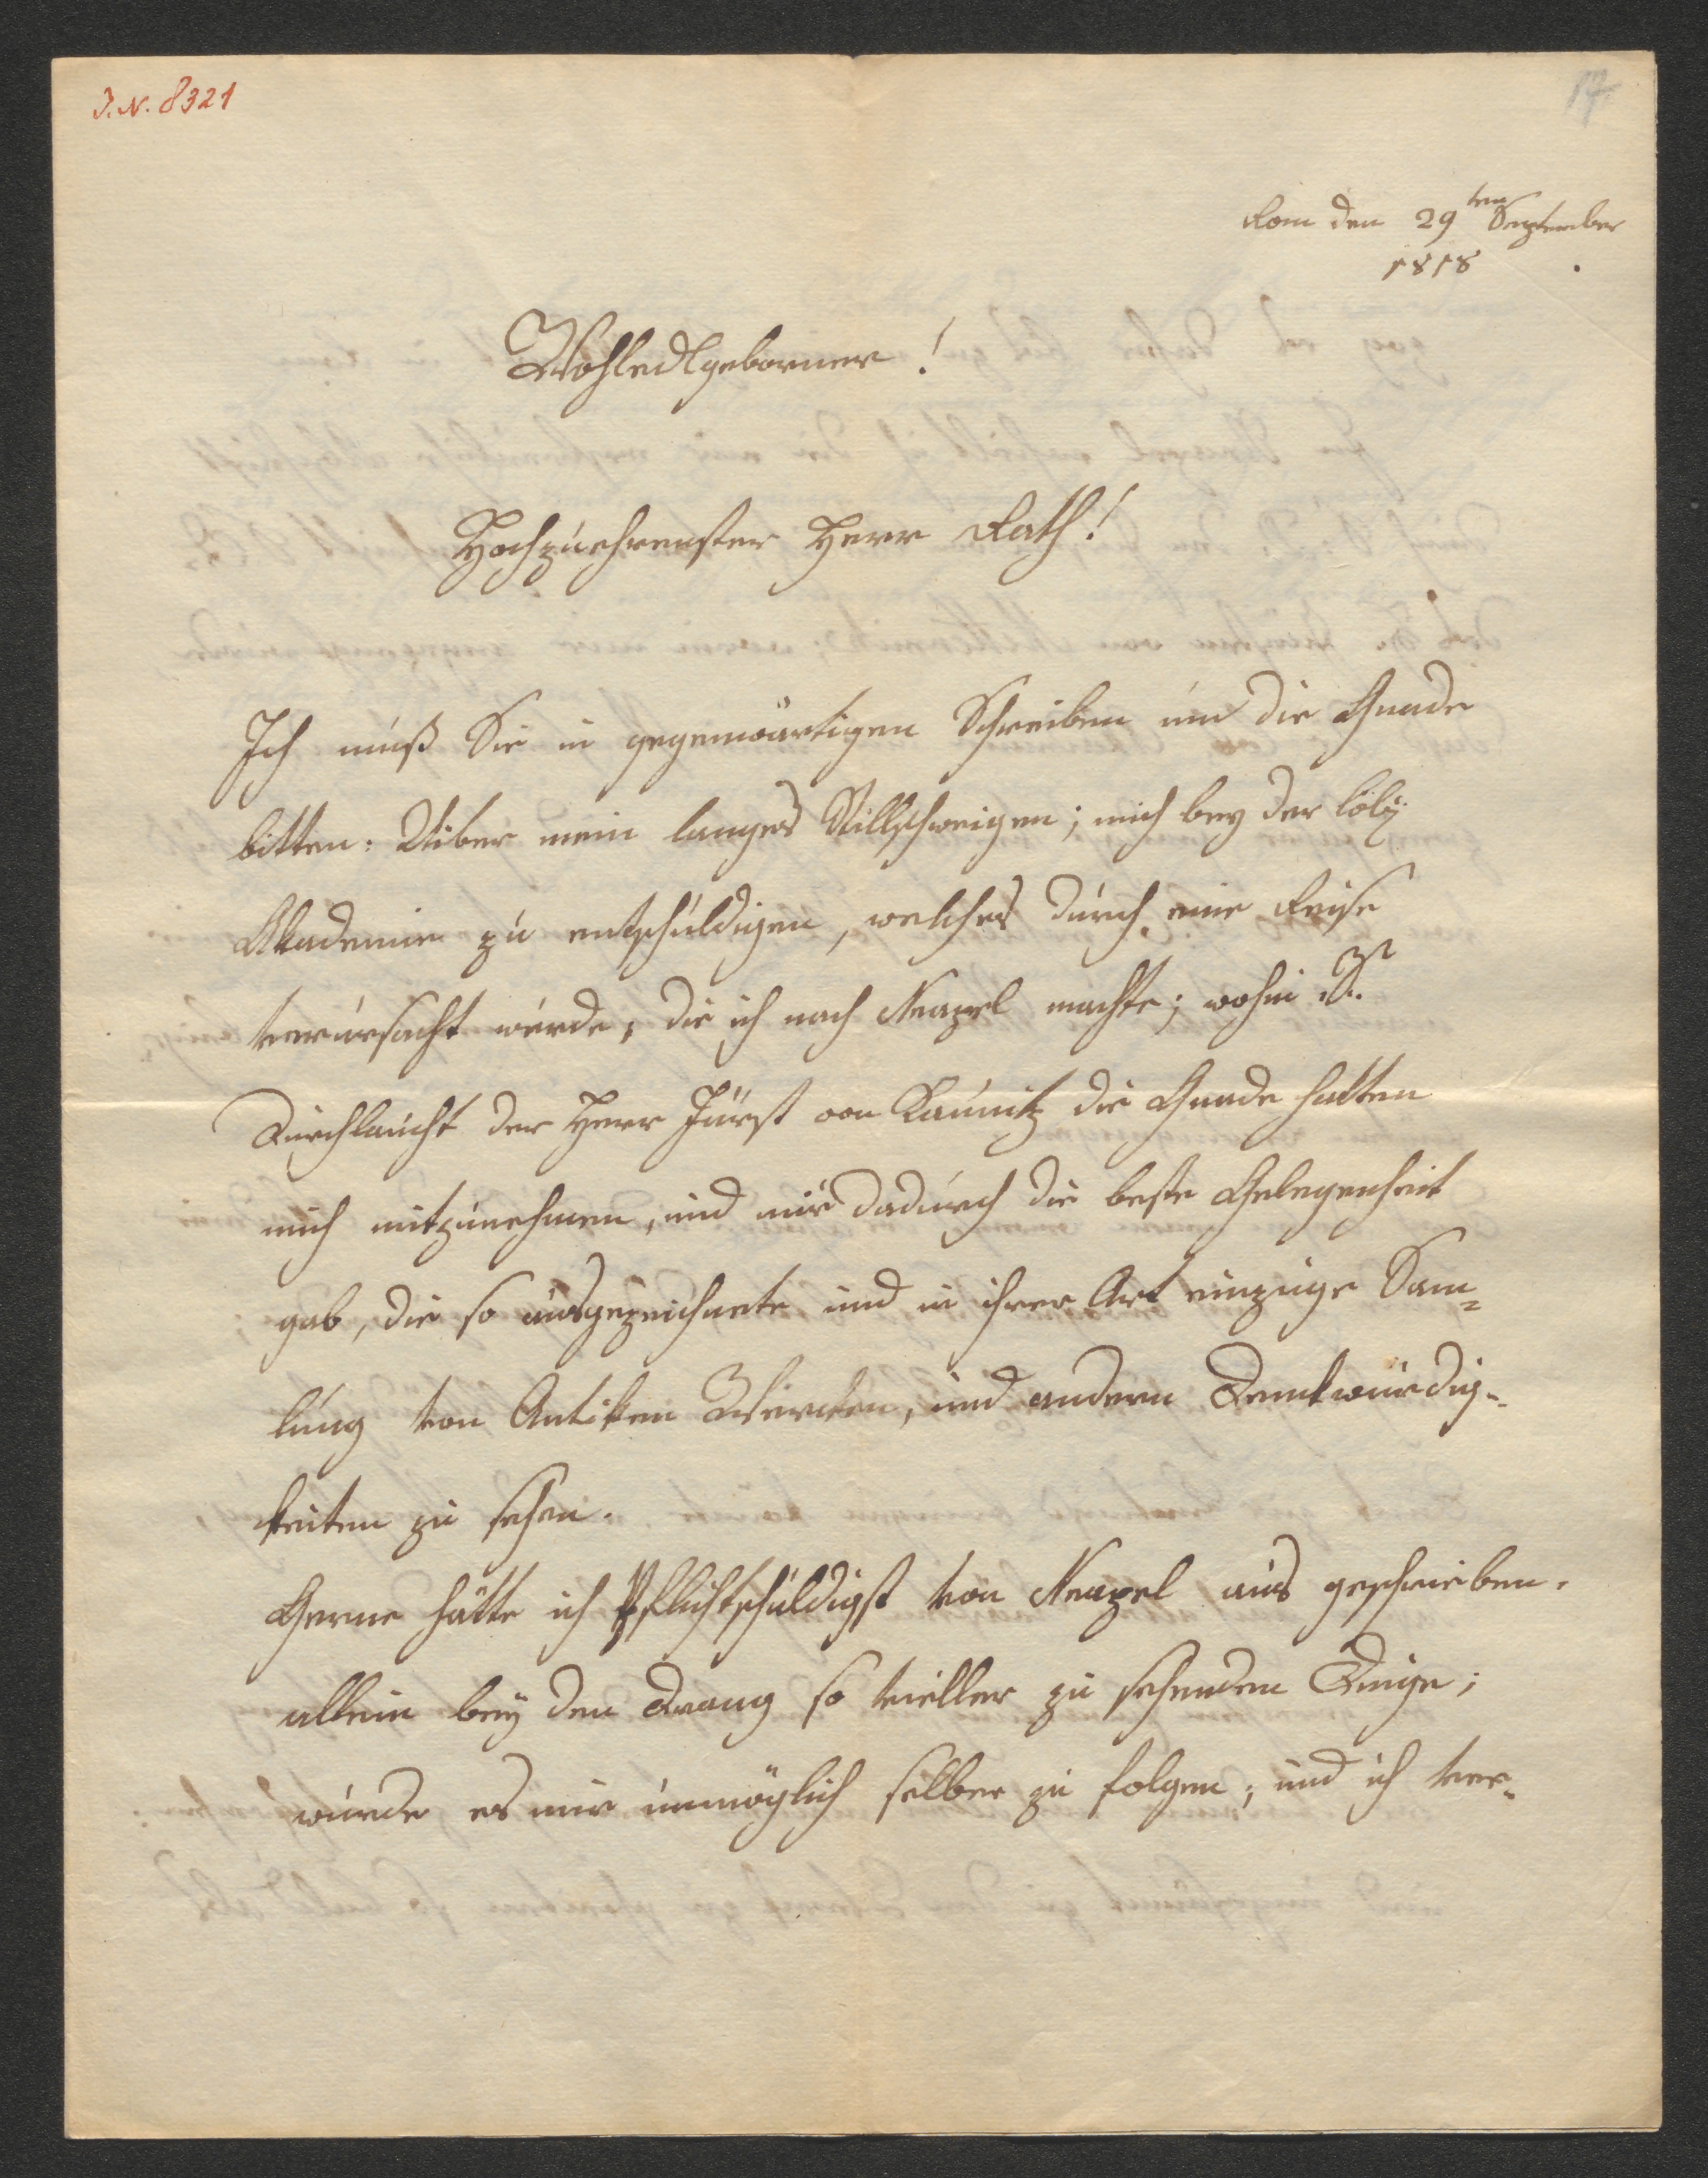 I.N. 8321
17
Rom den 29ten September
1818
Wohledlgeborner!
Hochzuehrenster Herr Rath!
Ich muß Sie in gegenwärtigen Schreiben um die Gnade
bitten: Uiber mein langes Stillschweigen; mich bey der löbl:
Akademie zu entschuldigen, welches durch eine Reise
verursacht wurde, die ich nach Neapel machte; wohin S:
Durchlaucht der Herr Fürst von Kaunitz die Gnade hatten
mich mitzunehmen, und mir dadurch die beste Gelegenheit
gab, die so ausgezeichnete und in ihrer Art einzige Sam=
lung von Antiken Wercken, und andern Denkwürdig-
keiten zu sehen.
Gerne hätte ich Pflichtschuldigst von Neapel aus geschrieben.
allein bey den Drang so vieller zu sehenden Dinge;
wurde es mir unmöglich selber zu folgen; und ich ver-